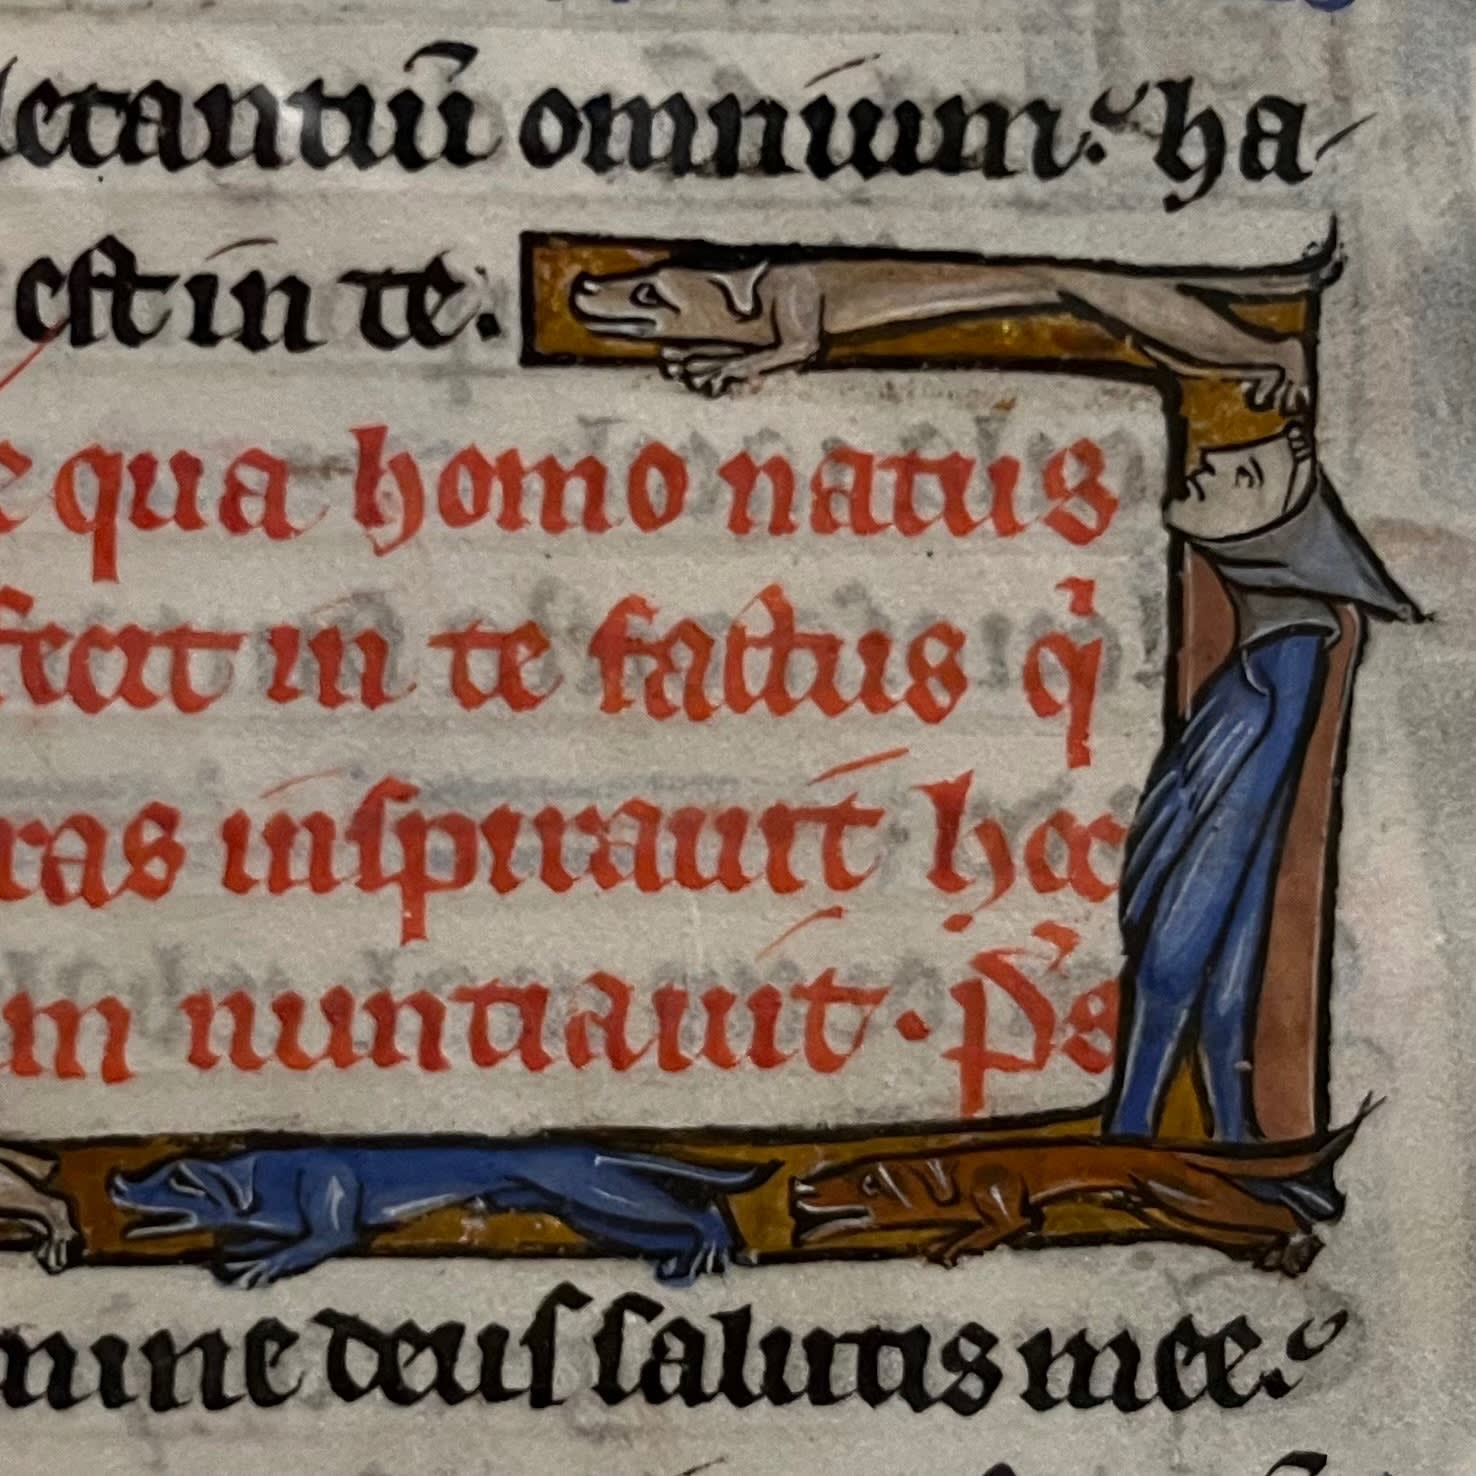 letantiū omnium: ha
est in te.
qua homo natus
fecit in te factus q̇
ras inspirauit hec
m nuntiauit. Ps̄
mine deus salutis mee: